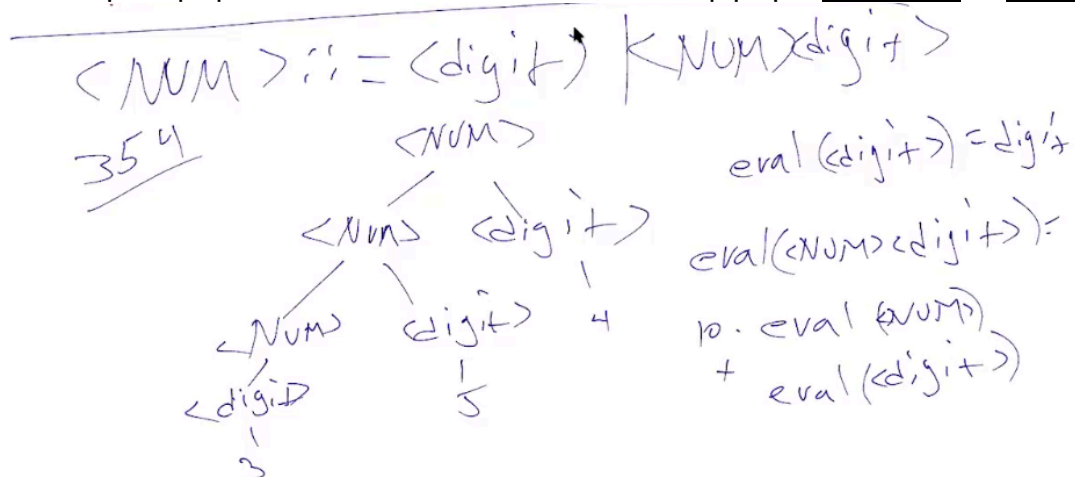 <NUM> ::= <digit> | <NUM><digit>
354
<NUM>
<Num> <digit>
<NUM> <digit> 4
<digit> 5
3
eval(<digit>) = digit
eval(<NUM><digit>) =
10 · eval(<NUM>)
+ eval(<digit>)